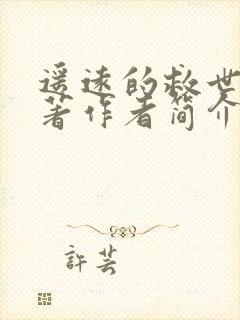 遥远的救世
著作者简介
許芸